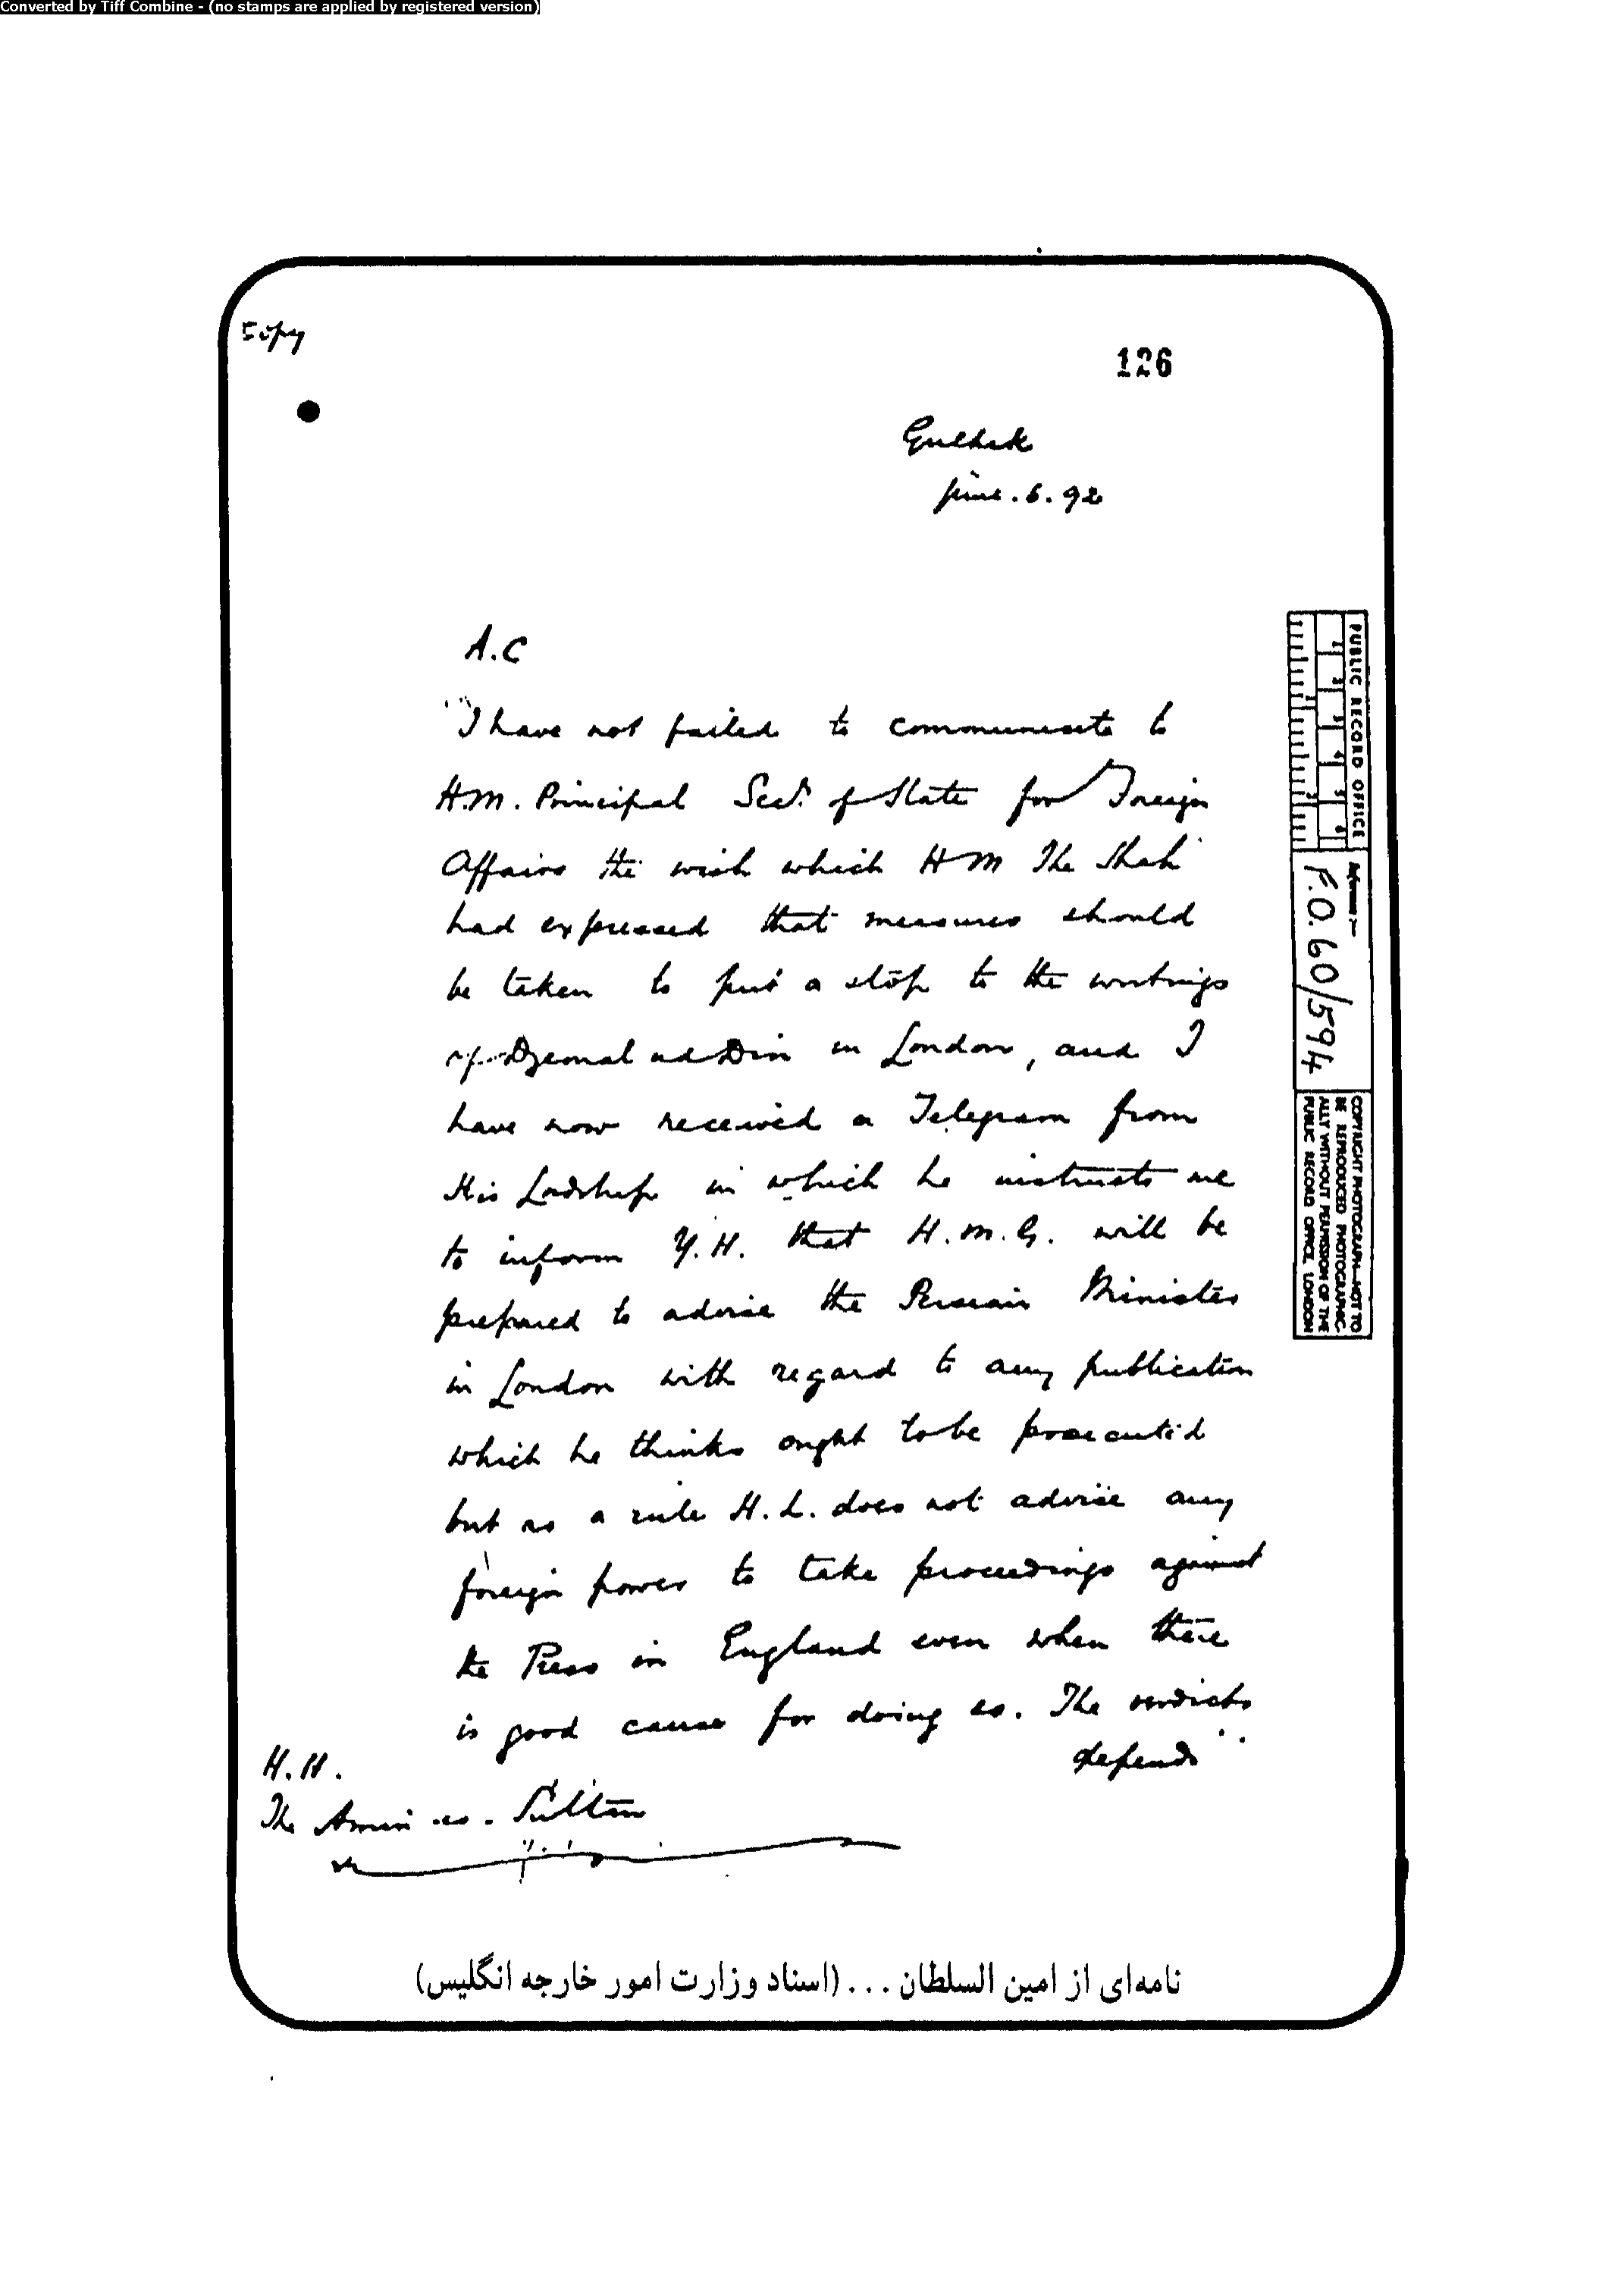 Converted by Tiff Combine - (no stamps are applied by registered version)
Copy
126
Gulhek
June. 6. 92
A.C
I have not failed to communicate to
H.M. Principal Secy. of State for Foreign
Affairs the wish which H M The Shah
had expressed that measures should
be taken to put a stop to the writings
of Djemal ad Din in London, and I
have now received a Telegram from
His Lordship in which he instructs me
to inform Y.H. that H.M.G. will be
prepared to advise the Persian Minister
in London with regard to any publication
which he thinks ought to be prosecuted
but as a rule H.L. does not advise any
foreign power to take proceedings against
the Press in England even when there
is good cause for doing so. The verdicts
depend
H.H.
The Amin-es-Sultan
PUBLIC RECORD OFFICE
1 2 3 4 5 6
1 2
Reference:-
F.O. 60/594
COPYRIGHT PHOTOGRAPH—NOT TO
BE REPRODUCED PHOTOGRAPHIC-
ALLY WITHOUT PERMISSION OF THE
PUBLIC RECORD OFFICE, LONDON
نامه‌ای از امین السلطان ... (اسناد وزارت امور خارجه انگلیس)